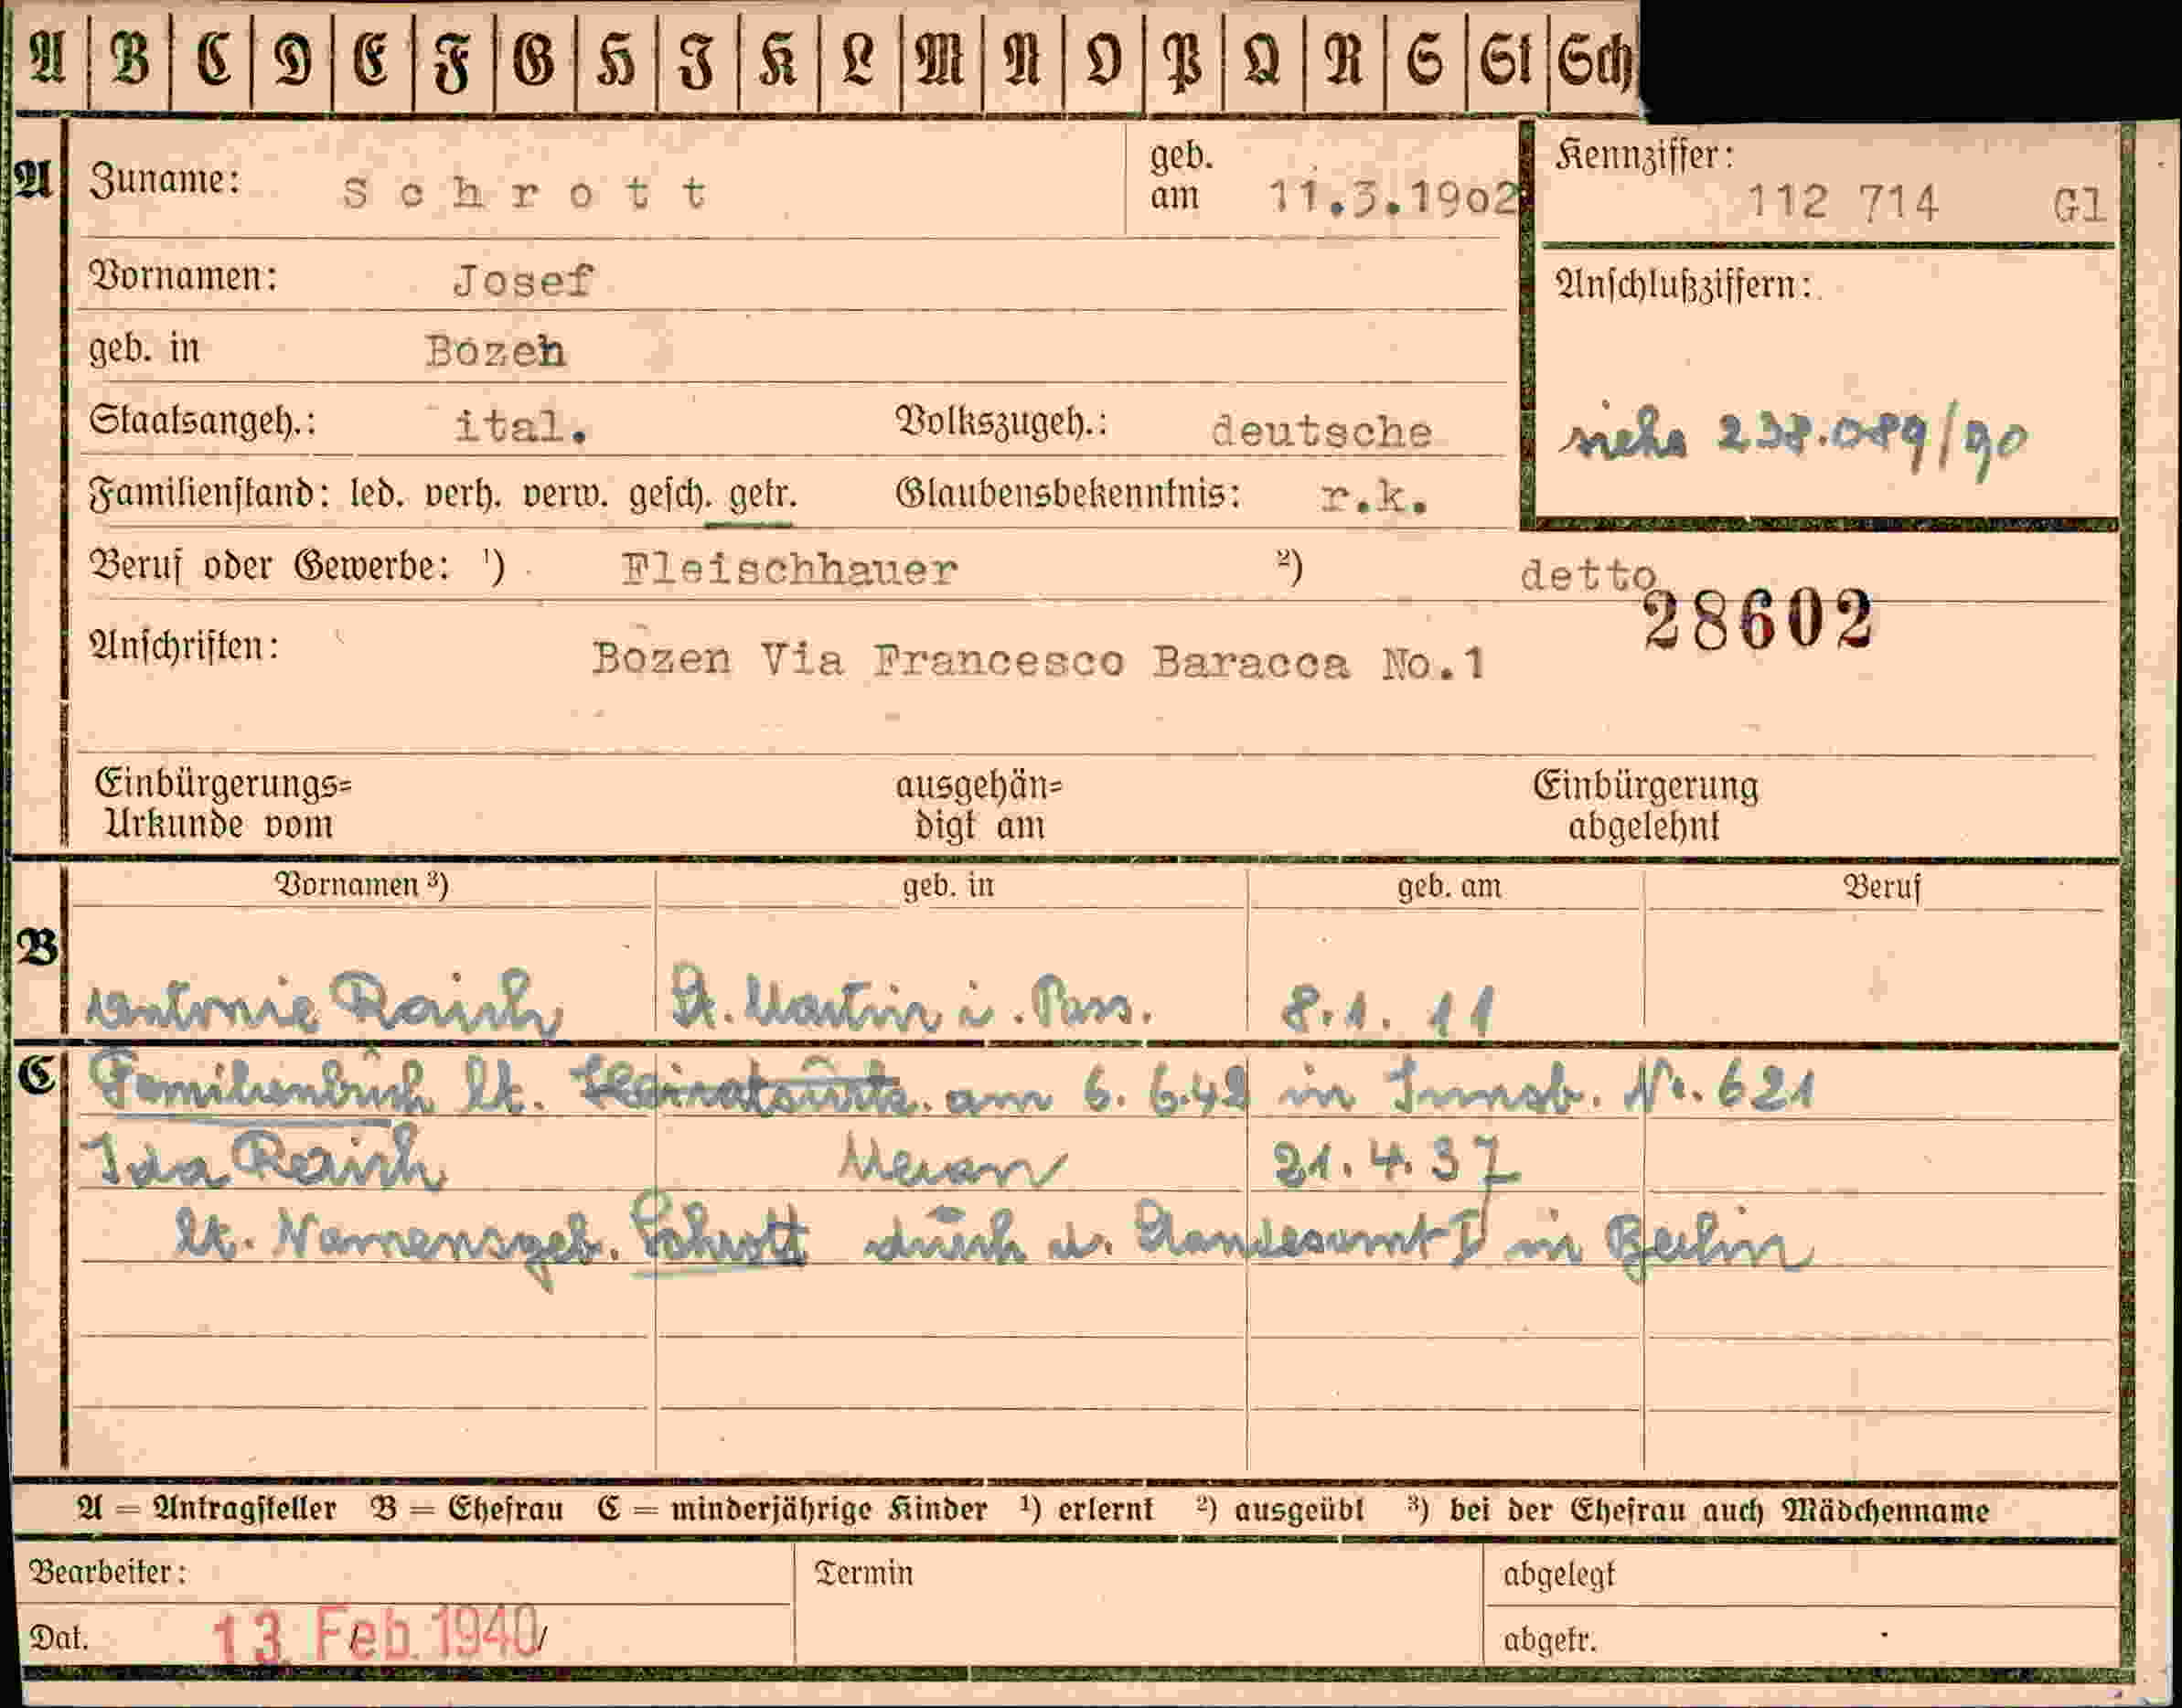 A B C D E F G H I K L M N O P Q R S St Sch
A Zuname: Schrott geb. am 11.3.1902 Kennziffer: 112 714 Gl
Vornamen: Josef Anschlußziffern:
geb. in Bozen
Staatsangeh.: ital. Volkszugeh.: deutsche siehe 238.089/90
Familienstand: led. verh. verw. gesch. getr. Glaubensbekenntnis: r.k.
Beruf oder Gewerbe: ¹) Fleischhauer ²) detto
28602
Anschriften: Bozen Via Francesco Baracca No.1
Einbürgerungs= ausgehän= Einbürgerung
Urkunde vom digt am abgelehnt
Vornamen ³) geb. in geb. am Beruf
B
Antonie Raich St. Martin i. Pass. 8.1.11
C Familienbuch lt. Heiratsurk. am 6.6.42 in Innsb. Nr. 621
Ida Raich Meran 21.4.37
lt. Namensgeb. Schrott durch d. Standesamt I in Berlin
A = Antragsteller B = Ehefrau C = minderjährige Kinder ¹) erlernt ²) ausgeübt ³) bei der Ehefrau auch Mädchenname
Bearbeiter: Termin abgelegt
Dat. 13. Feb. 1940 abgetr.